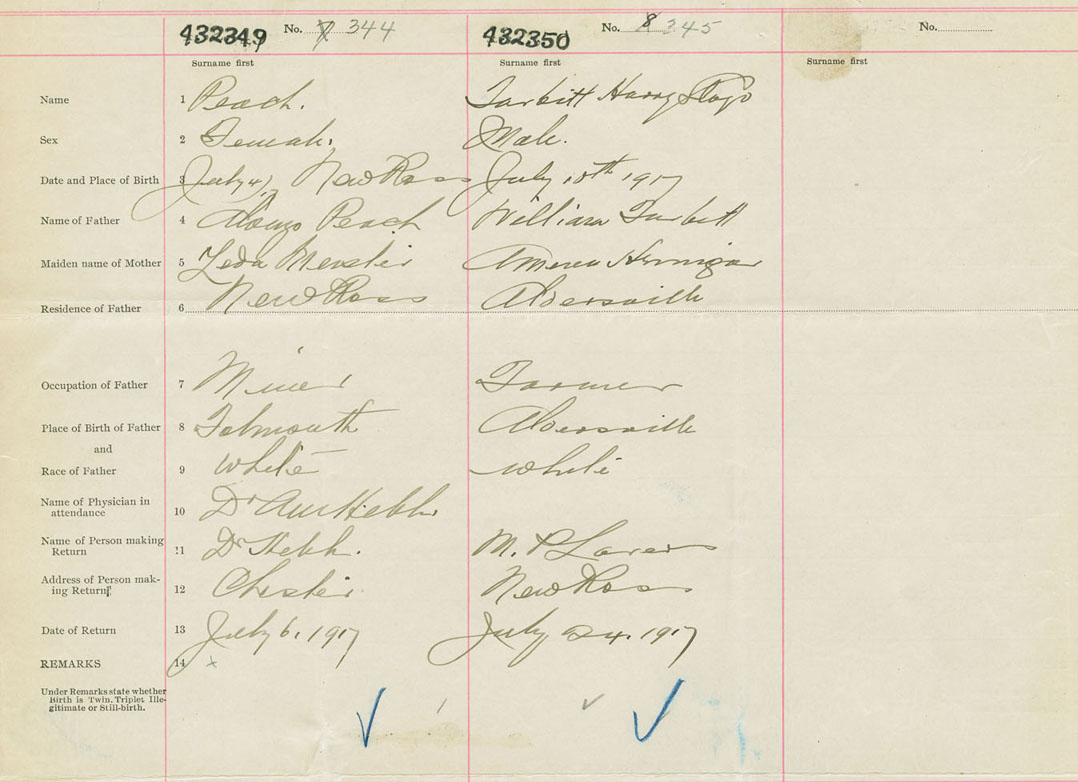 432349 No. 7 344 432350 No. 8 345 No.
Surname first Surname first Surname first
Name 1 Peach. Turbitt Harry
Sex 2 Female. Male.
Date and Place of Birth 3 July 4, New Ross July 10th 1917
Name of Father 4 Alonzo Peach William Turbitt
Maiden name of Mother 5 Leda Meister
Residence of Father 6 New Ross Aldersville
Occupation of Father 7 Miner Farmer
Place of Birth of Father 8 Falmouth Aldersville
and
Race of Father 9 White White
Name of Physician in
attendance 10 Dr Hebb
Name of Person making
Return 11 Dr Hebb. M. P
Address of Person mak-
ing Return 12 Chester New Ross
Date of Return 13 July 6, 1917 July 24. 1917
REMARKS 14 x
Under Remarks state whether
Birth is Twin. Triplet Ille-
gitimate or Still-birth.